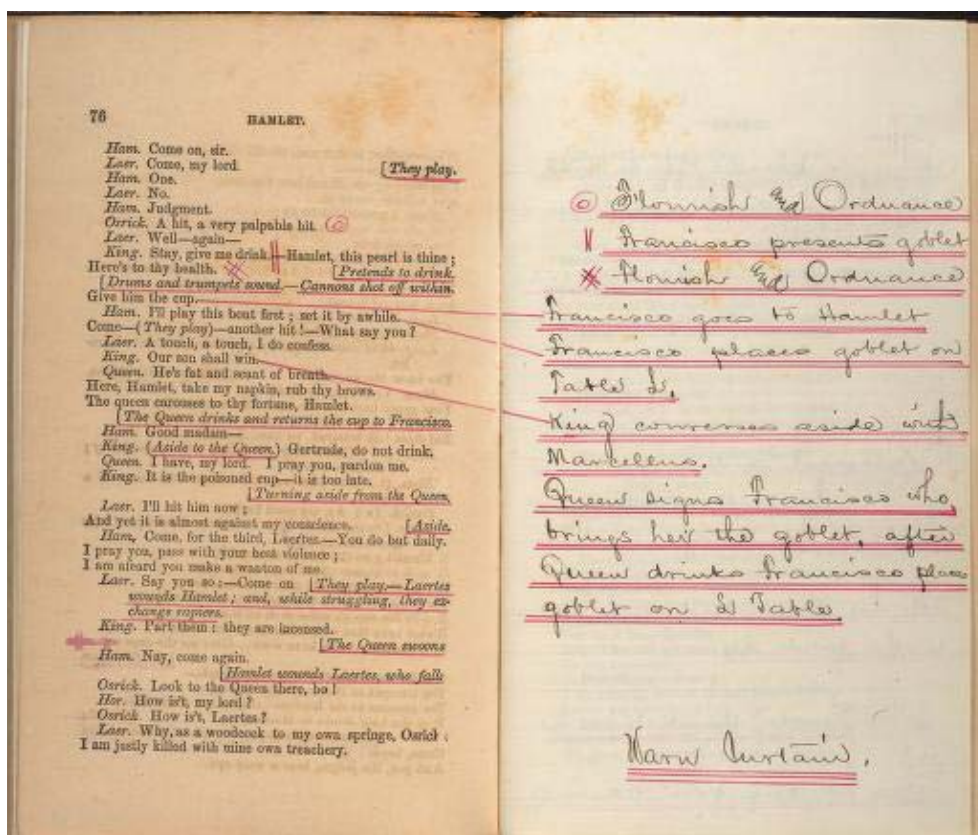 76 HAMLET.
Ham. Come on, sir.
Laer. Come, my lord. [They play.
Ham. One.
Laer. No.
Ham. Judgment.
Osrick. A hit, a very palpable hit.
Laer. Well—again—
King. Stay, give me drink. Hamlet, this pearl is thine ;
Here's to thy health. [Pretends to drink.
[Drums and trumpets sound.—Cannons shot off within.
Give him the cup.
Ham. I'll play this bout first ; set it by awhile.
Come—(They play)—another hit !—What say you ?
Laer. A touch, a touch, I do confess.
King. Our son shall win.
Queen. He's fat and scant of breath.
Here, Hamlet, take my napkin, rub thy brows.
The queen carouses to thy fortune, Hamlet.
[The Queen drinks and returns the cup to Francisco.
Ham. Good madam—
King. (Aside to the Queen.) Gertrude, do not drink.
Queen. I have, my lord. I pray you, pardon me.
King. It is the poisoned cup—it is too late.
[Turning aside from the Queen.
Laer. I'll hit him now ;
And yet it is almost against my conscience. [Aside.
Ham. Come, for the third, Laertes.—You do but dally.
I pray you, pass with your best violence ;
I am afeard you make a wanton of me.
Laer. Say you so :—Come on [They play.—Laertes
wounds Hamlet ; and, while struggling, they ex-
change rapiers.
King. Part them : they are incensed.
[The Queen swoons
Ham. Nay, come again.
[Hamlet wounds Laertes, who falls
Osrick. Look to the Queen there, ho !
Hor. How is't, my lord ?
Osrick. How is't, Laertes ?
Laer. Why, as a woodcock to my own springe, Osrick
I am justly killed with mine own treachery.
Flourish and Ordnance
Francisco presents goblet
Flourish and Ordnance
Francisco goes to Hamlet
Francisco places goblet on
Table L.
King converses aside with
Marcellus.
Queen signs Francisco who
brings her the goblet, after
Queen drinks Francisco places
goblet on L Table
Warn Curtain.